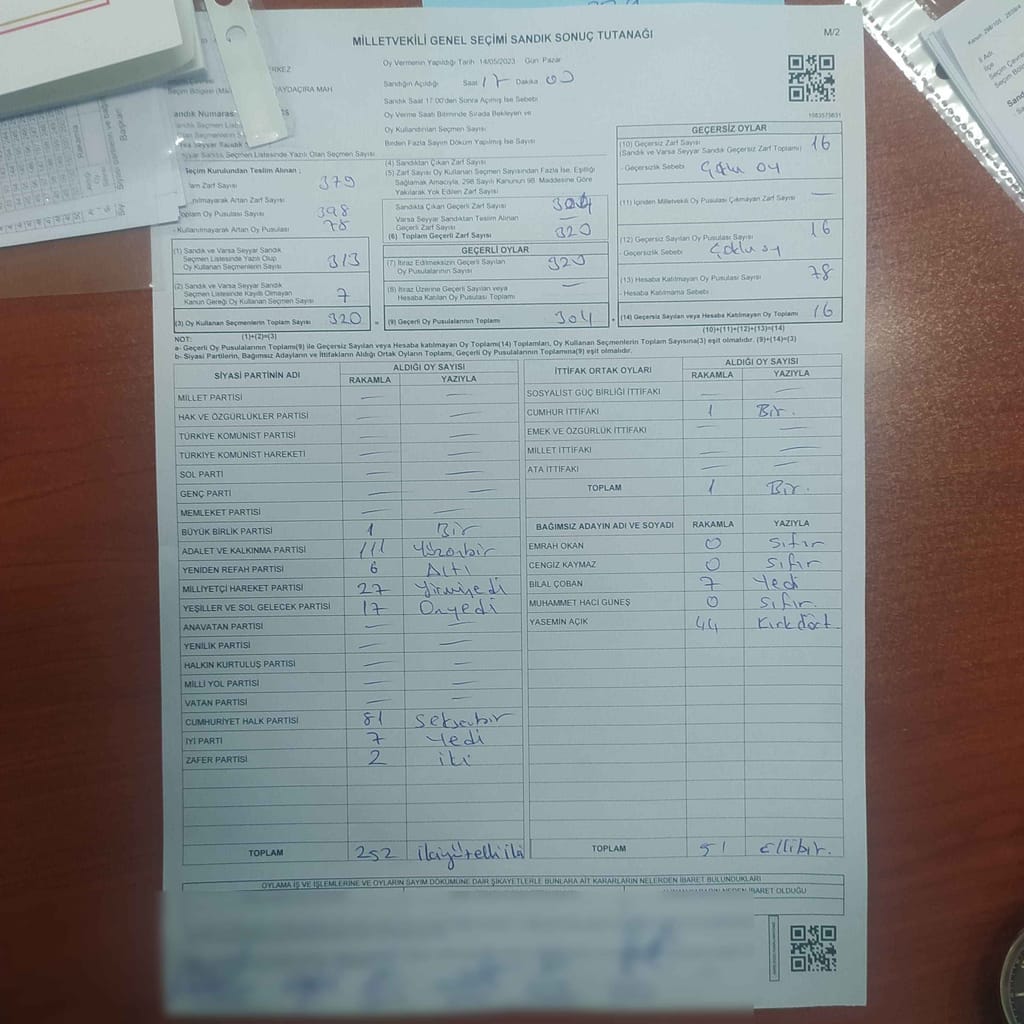 MİLLETVEKİLİ GENEL SEÇİMİ SANDIK SONUÇ TUTANAĞI
M/2
Oy Vermenin Yapıldığı Tarih 14/05/2023 Gün Pazar
Sandığın Açıldığı Saat 17 Dakika 00
Sandık Saat 17:00'den Sonra Açılmış İse Sebebi
Oy Verme Saati Bitiminde Sırada Bekleyen ve
Oy Kullandırılan Seçmen Sayısı
Birden Fazla Sayım Döküm Yapılmış İse Sayısı
AYDAÇIRA MAH
Seçim Kurulundan Teslim Alınan ;
Zarf Sayısı 379
Artan Zarf Sayısı
Toplam Oy Pusulası Sayısı 398
- Kullanılmayarak Artan Oy Pusulası 78
(1) Sandık ve Varsa Seyyar Sandık
Seçmen Listesinde Yazılı Olup
Oy Kullanan Seçmenlerin Sayısı 313
(2) Sandık ve Varsa Seyyar Sandık
Seçmen Listesinde Kayıtlı Olmayan
Kanun Gereği Oy Kullanan Seçmen Sayısı 7
(3) Oy Kullanan Seçmenlerin Toplam Sayısı 320
(1)+(2)=(3)
(4) Sandıktan Çıkan Zarf Sayısı
(5) Zarf Sayısı Oy Kullanan Seçmen Sayısından Fazla İse, Eşitliği
Sağlamak Amacıyla, 298 Sayılı Kanunun 98. Maddesine Göre
Yakılarak Yok Edilen Zarf Sayısı
Sandıkta Çıkan Geçerli Zarf Sayısı 304
Varsa Seyyar Sandıktan Teslim Alınan
Geçerli Zarf Sayısı —
(6) Toplam Geçerli Zarf Sayısı 320
GEÇERLİ OYLAR
(7) İtiraz Edilmeksizin Geçerli Sayılan
Oy Pusulalarının Sayısı 320
(8) İtiraz Üzerine Geçerli Sayılan veya
Hesaba Katılan Oy Pusulası Toplamı —
(9) Geçerli Oy Pusulalarının Toplamı 304
GEÇERSİZ OYLAR
(10) Geçersiz Zarf Sayısı 16
(Sandık ve Varsa Seyyar Sandık Geçersiz Zarf Toplamı)
- Geçersizlik Sebebi Çoklu oy
(11) İçinden Milletvekili Oy Pusulası Çıkmayan Zarf Sayısı —
(12) Geçersiz Sayılan Oy Pusulası Sayısı 16
- Geçersizlik Sebebi Çoklu oy
(13) Hesaba Katılmayan Oy Pusulası Sayısı 78
- Hesaba Katılmama Sebebi
(14) Geçersiz Sayılan veya Hesaba Katılmayan Oy Toplamı 16
(10)+(11)+(12)+(13)=(14)
NOT:
a- Geçerli Oy Pusulasının Toplamı(9) ile Geçersiz Sayılan veya Hesaba katılmayan Oy Toplamı(14) Toplamları, Oy Kullanan Seçmenlerin Toplam Sayısına(3) eşit olmalıdır. (9)+(14)=(3)
b- Siyasi Partilerin, Bağımsız Adayların ve İttifakların Aldığı Ortak Oyların Toplamı, Geçerli Oy Pusulalarının Toplamına(9) eşit olmalıdır.
SİYASİ PARTİNİN ADI ALDIĞI OY SAYISI
RAKAMLA YAZIYLA
MİLLET PARTİSİ — —
HAK VE ÖZGÜRLÜKLER PARTİSİ — —
TÜRKİYE KOMÜNİST PARTİSİ — —
TÜRKİYE KOMÜNİST HAREKETİ — —
SOL PARTİ — —
GENÇ PARTİ — —
MEMLEKET PARTİSİ — —
BÜYÜK BİRLİK PARTİSİ 1 Bir
ADALET VE KALKINMA PARTİSİ 111 Yüzonbir
YENİDEN REFAH PARTİSİ 6 Altı
MİLLİYETÇİ HAREKET PARTİSİ 27 Yirmiyedi
YEŞİLLER VE SOL GELECEK PARTİSİ 17 Onyedi
ANAVATAN PARTİSİ — —
YENİLİK PARTİSİ — —
HALKIN KURTULUŞ PARTİSİ — —
MİLLİ YOL PARTİSİ — —
VATAN PARTİSİ — —
CUMHURİYET HALK PARTİSİ 81 Seksenbir
İYİ PARTİ 7 Yedi
ZAFER PARTİSİ 2 iki
TOPLAM 252 ikiyüzelliiki
İTTİFAK ORTAK OYLARI ALDIĞI OY SAYISI
RAKAMLA YAZIYLA
SOSYALİST GÜÇ BİRLİĞİ İTTİFAKI — —
CUMHUR İTTİFAKI 1 Bir.
EMEK VE ÖZGÜRLÜK İTTİFAKI — —
MİLLET İTTİFAKI — —
ATA İTTİFAKI — —
TOPLAM 1 Bir.
BAĞIMSIZ ADAYIN ADI VE SOYADI RAKAMLA YAZIYLA
EMRAH OKAN 0 Sıfır
CENGİZ KAYMAZ 0 Sıfır
BİLAL ÇOBAN 7 Yedi
MUHAMMET HACI GÜNEŞ 0 Sıfır.
YASEMİN AÇIK 44 Kırkdört
TOPLAM 51 Ellibir.
OYLAMA İŞ VE İŞLEMLERİNE VE OYLARIN SAYIM DÖKÜMÜNE DAİR ŞİKAYETLERLE BUNLARA AİT KARARLARIN NELERDEN İBARET BULUNDUKLARI